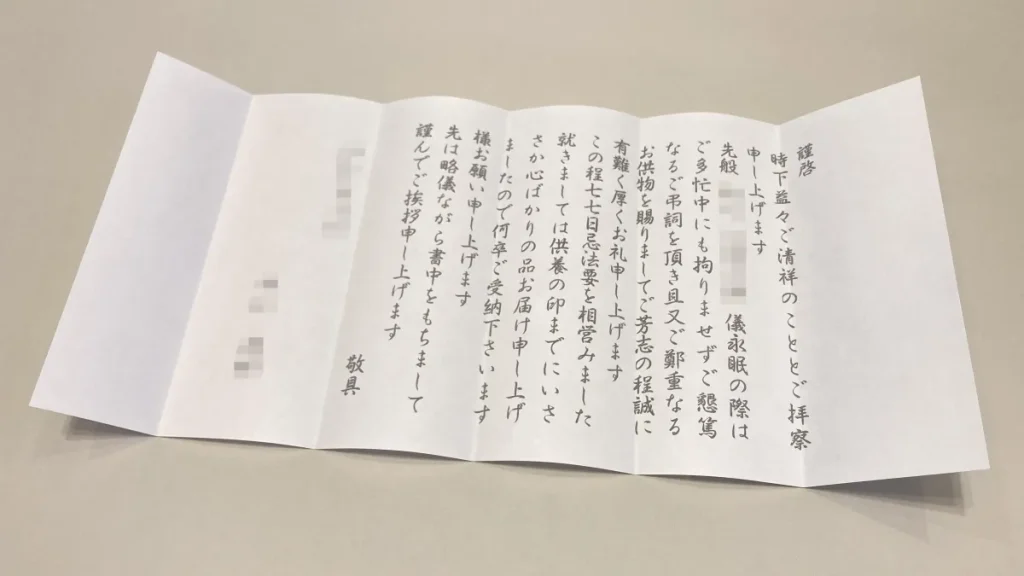 謹啓
時下益々ご清祥のこととご拝察
申し上げます
先般 儀永眠の際は
ご多忙中にも拘りませずご懇篤
なるご弔詞を頂き且又ご鄭重なる
お供物を賜りましてご芳志の程誠に
有難く厚くお礼申し上げます
この程七七日忌法要を相営みました
就きましては供養の印までにいさ
さか心ばかりの品お届け申し上げ
ましたので何卒ご受納下さいます
様お願い申し上げます
先は略儀ながら書中をもちまして
謹んでご挨拶申し上げます
敬具